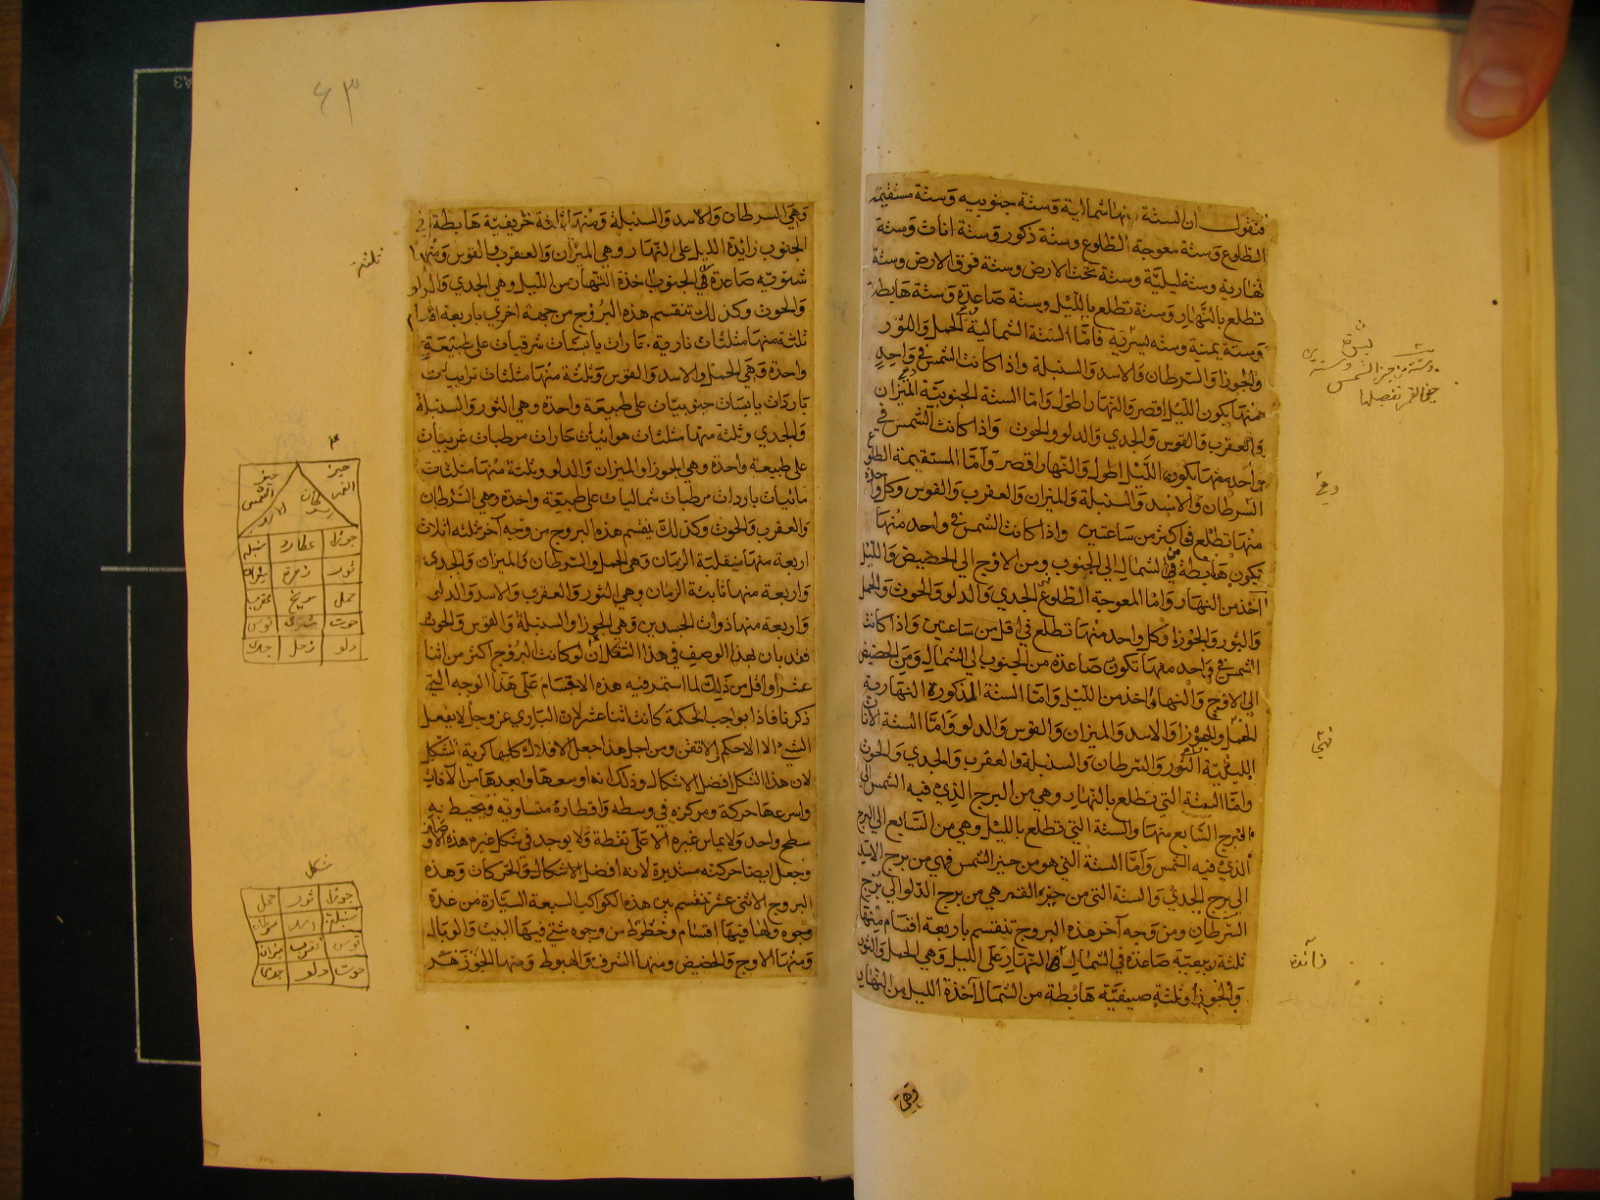 فنقول ان الستة منها شمالية وستة جنوبية وستة مستقيمة
الطلوع وستة معوجة الطلوع وستة ذكور وستة اناث وستة
نهارية وستة ليلية وستة تحت الارض وستة فوق الارض وستة
تطلع بالنهار وستة تطلع بالليل وستة صاعدة وستة هابطة
وستة يمنية وستة يسرية فاما الستة الشمالية الحمل والثور
والجوزا والسرطان والاسد والسنبلة واذا كانت الشمس في واحد
منها يكون الليل اقصر والنهار اطول واما الستة الجنوبية الميزان
والعقرب والقوس والجدي والدلو والحوت واذا كانت الشمس في
واحد منها يكون الليل اطول والنهار اقصر واما المستقيمة الطلوع
السرطان والاسد والسنبلة والميزان والعقرب والقوس وكل واحد
منها تطلع في اكثر من ساعتين واذا كانت الشمس في واحد منها
تكون هابطة من الشمال الى الجنوب ومن الاوج الى الحضيض والليل
آخذ من النهار واما المعوجة الطلوع الجدي والدلو والحوت والحمل
والثور والجوزا وكل واحد منها تطلع في اقل من ساعتين واذا كانت
الشمس في واحد منها تكون صاعدة من الجنوب الى الشمال ومن الحضيض
الى الاوج والنهار آخذ من الليل واما الستة المذكورة النهارية
الحمل والجوزا والاسد والميزان والقوس والدلو واما الستة الاناث
الليلية الثور والسرطان والسنبلة والعقرب والجدي والحوت
واما الستة التي تطلع بالنهار وهي من البرج الذي فيه الشمس الى
البرج السابع منها والستة التي تطلع بالليل وهي من السابع الى البرج
الذي فيه الشمس واما الستة التي هو من حيز الشمس فهي من برج الاسد
الى برج الجدي والستة التي من حيز القمر هي من برج الدلو الى برج
السرطان ومن وجه آخر هذه البروج تنقسم باربعة اقسام منها
ثلثة ربيعية صاعدة في الشمال النهار على الليل وهي الحمل والثور
والجوزا وثلثة صيفية هابطة من الشمال آخذة الليل من النهار
وهي
دقي
زآئدة
وهي السرطان والاسد والسنبلة ومنها ثلاثة خريفية هابطة في
الجنوب زائدة الليل على النهار وهي الميزان والعقرب والقوس ومنها
شتوية صاعدة في الجنوب آخذة النهار من الليل وهي الجدي والدلو
والحوت وكذلك تنقسم هذه البروج من جهة اخرى باربعة اقسام
ثلثة منها مثلثات نارية حارات يابسات شرقيات على طبيعة
واحدة وهي الحمل والاسد والقوس وثلثة منها مثلثات ترابيات
باردات يابسات جنوبيات على طبيعة واحدة وهي الثور والسنبلة
والجدي وثلثة منها مثلثات هوائيات حارات مرطبات غربيات
على طبيعة واحدة وهي الجوزا والميزان والدلو وثلثة منها مثلثات
مائيات باردات مرطبات شماليات على طبيعة واحدة وهي السرطان
والعقرب والحوت وكذلك ينقسم هذه البروج من وجه آخر ثلثه اثلاث
اربعة منها منقلبة الزمان وهي الحمل والسرطان والميزان والجدي
واربعة منها ثابتة الزمان وهي الثور والعقرب والاسد والدلو
واربعة منها ذوات الجسدين وهي الجوزا والسنبلة والقوس والحوت
فقد بان بهذا الوصف في هذا الشكل ان لو كانت البروج اكثر من اثنا
عشر او اقل من ذلك لما استمر فيه هذه الاقسام على هذا الوجه التي
ذكرنا فاذا بواجب الحكمة كانت اثنا عشر لان الباري عز وجل لا يفعل
الشيء الا الاحكم الاتقن ومن اجل هذا جعل الافلاك كلها كرية الشكل
لان هذا الشكل افضل الاشكال وذلك انه اوسعها وابعدها من الآفات
واسرعها حركة ومركزه في وسطه واقطاره متساوية ويحيط به
سطح واحد ولا يماس غيره الا على نقطة ولا يوجد في شكل غيره هذه الاوصاف
وجعل ايضا حركته مستديرة لانه افضل الاشكال والحركات وهذه
البروج الاثنى عشر تنقسم بين هذه الكواكب السبعة السيارة من عدة
وجوه ولها فيها اقسام وخطوط من وجوه شتى فيها البيت والوبال
ومنها الاوج والحضيض ومنها الشرف والهبوط ومنها الجوزهر
٤٣
ثلثة
حيز القمر حيز الشمس
سرطان اسد
جوزا عطارد سنبله
ثور زهرة ميزان
حمل مريخ عقرب
حوت مشتري قوس
دلو زحل جدي
شكل
جوزا ثور حمل
سنبلة اسد سرطان
قوس عقرب ميزان
حوت دلو جدي